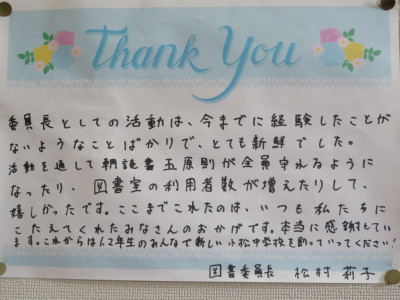 Thank You
委員長としての活動は、今までに経験したことが
ないようなことばかりで、とても新鮮でした。
活動を通して朝読書五原則が全員守れるように
なったり、図書室の利用者数が増えたりして、
嬉しかったです。ここまでこれたのは、いつも私たちに
こたえてくれたみなさんのおかげです。本当に感謝してい
ます。これからは1、2年生のみんなで新しい小松中学校を創っていってください!
図書委員長 松村 莉子